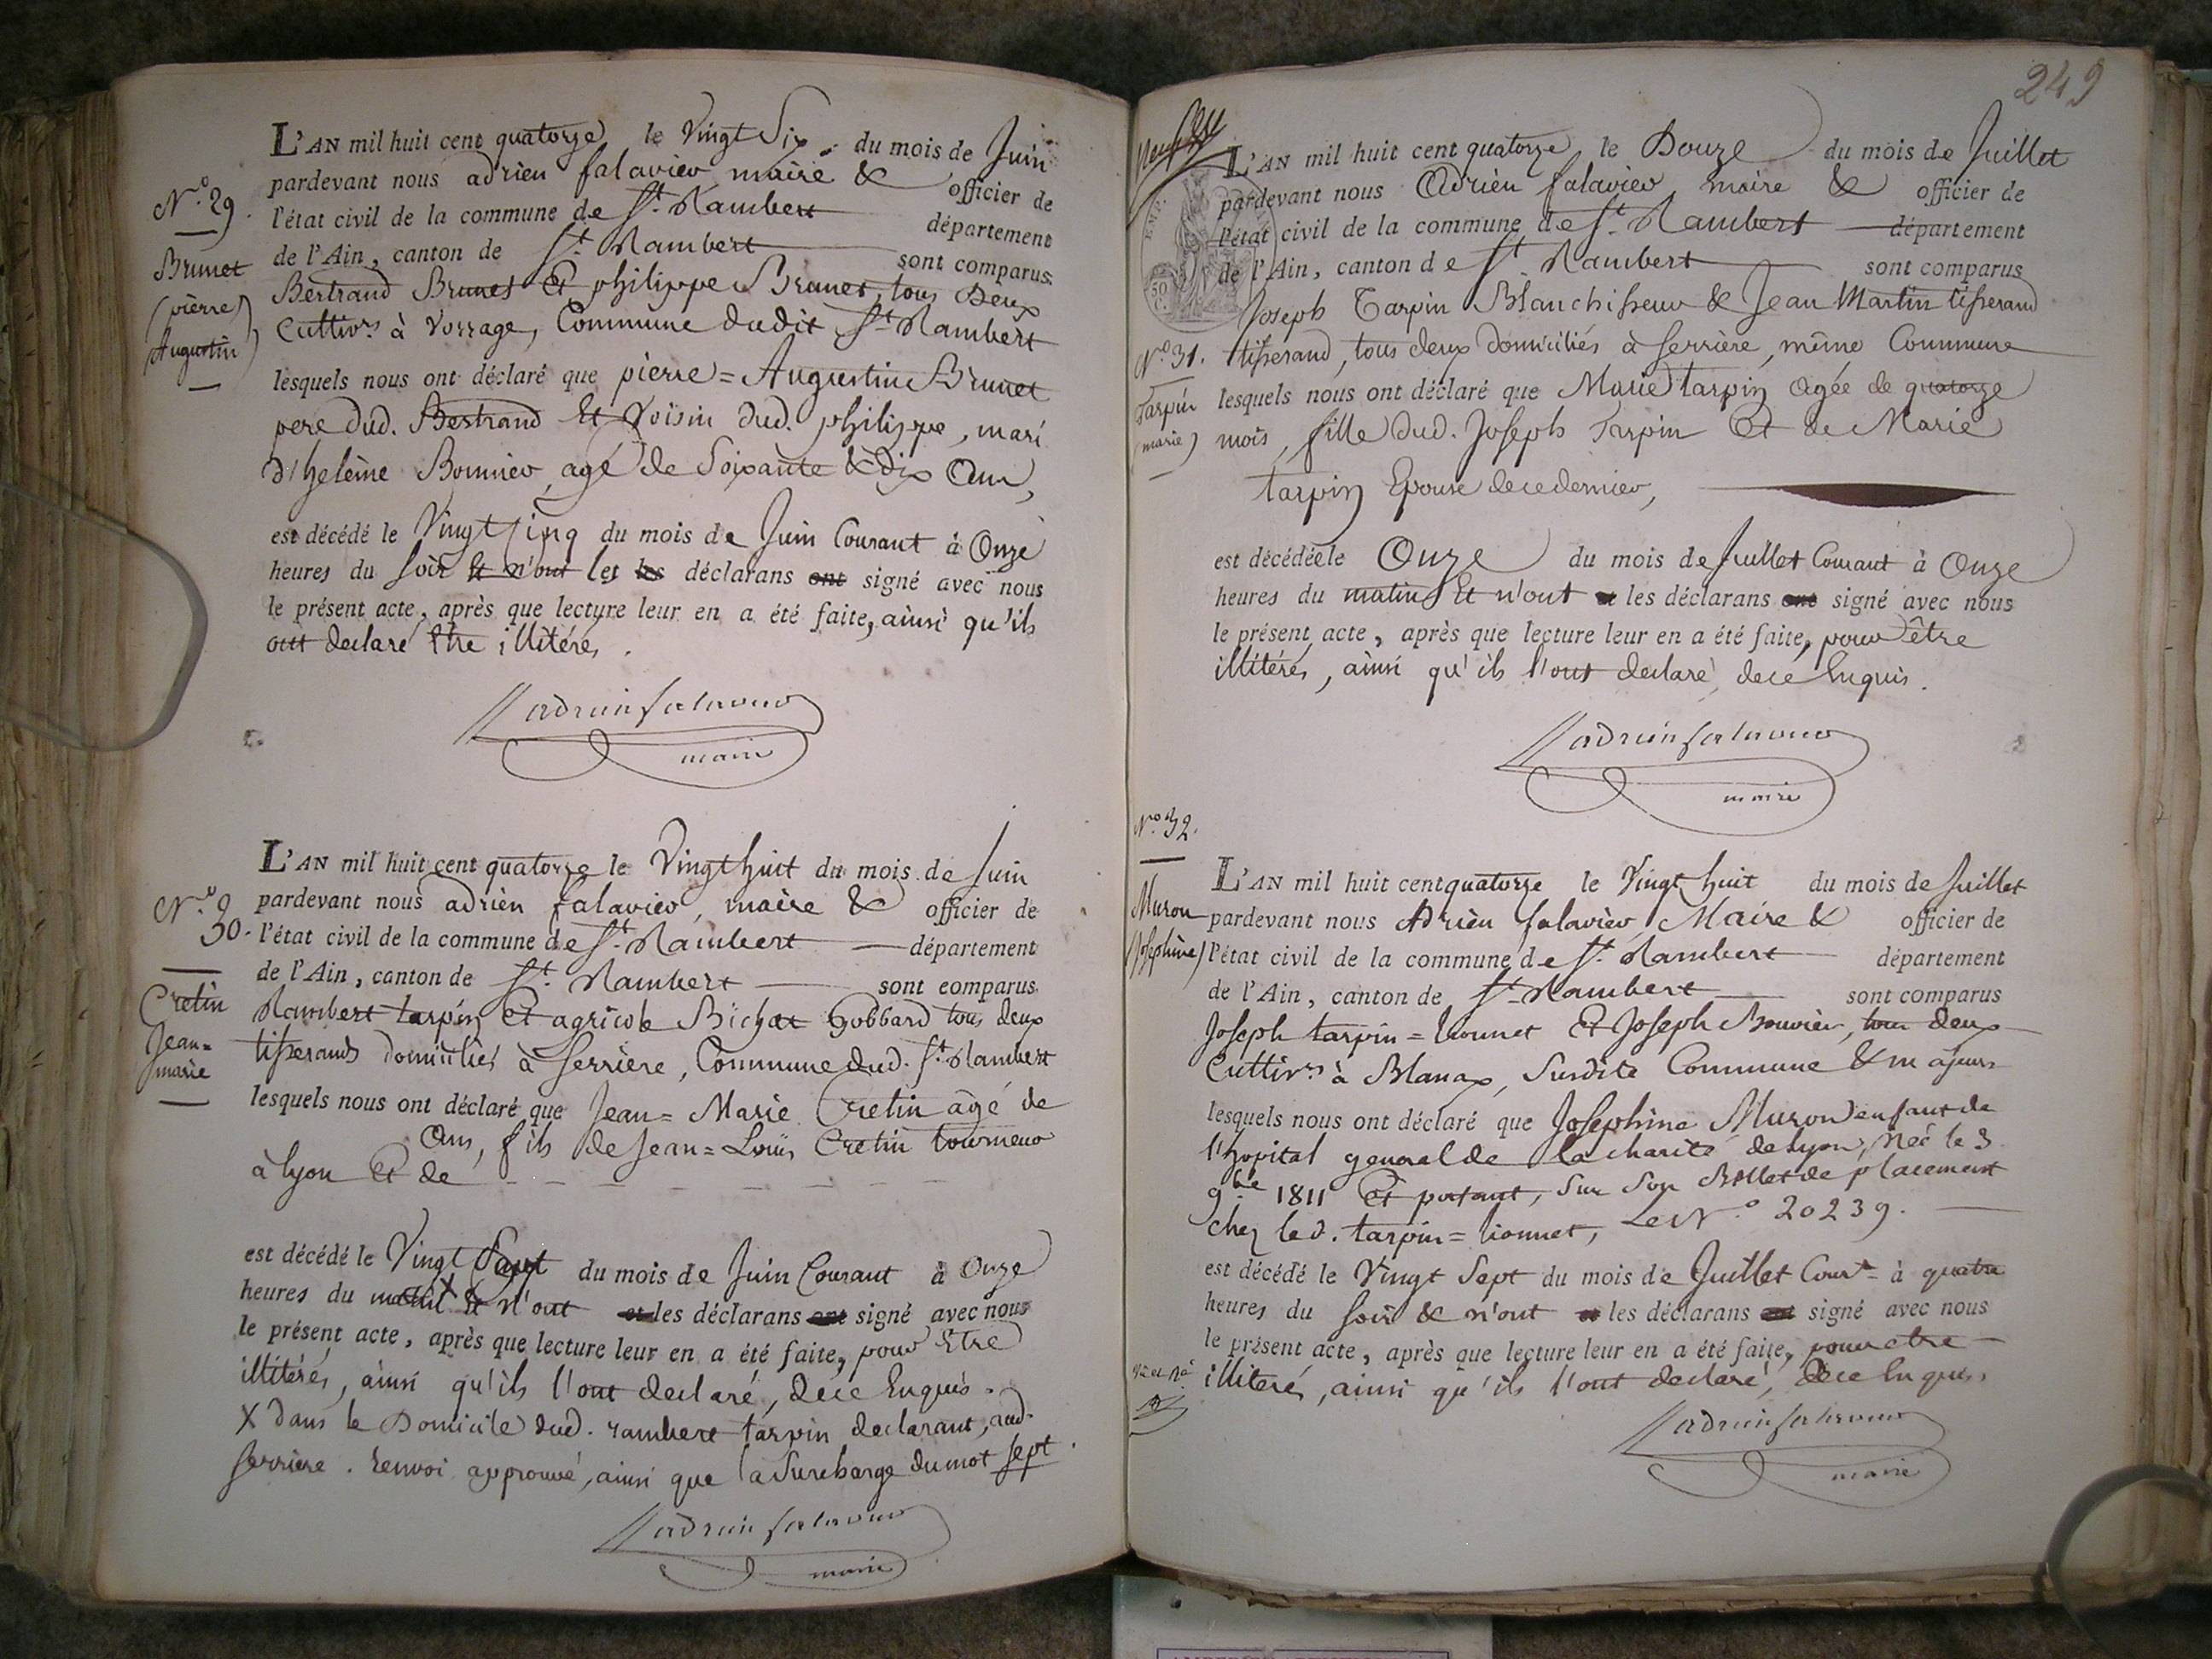 L'AN mil huit cent quatorze le Vingt Six du mois de Juin
pardevant nous adrien falavier maire & officier de
N.º 29.
l'état civil de la commune de St. Rambert département
de l'Ain, canton de St. Rambert sont comparus
Brunet
(pierre)
Augustin)
Bertrand Brunet Et philippe Brunet, tous Deux
Cultivrs à Vorrage, Commune dudit St. Rambert
lesquels nous ont déclaré que pierre=Augustin Brunet
pere dud. Bertrand Et Voisin dud. philippe, mari
d'helène Bonnier, agé de Soixante & Dix Ans,
est décédé le Vingt Cinq du mois de Juin Courant à Onze
heures du Soir Et n'ont les les déclarans ont signé avec nous
le présent acte, après que lecture leur en a été faite, ainsi qu'ils
ont declaré Etre illitérés.
adrien falavier
maire
L'AN mil huit cent quatorze le Vingt huit du mois de Juin
pardevant nous adrien falavier, maire & officier de
N.º 30.
l'état civil de la commune de St. Rambert département
de l'Ain, canton de St. Rambert sont comparus
Cretin
Jean=
marie
Rambert tarpin Et agricole Bichat Gobbard tous deux
tisserands domiciliés à Serrière, Commune dud. St. Rambert
lesquels nous ont déclaré que Jean=Marie Cretin âgé de
Ans, fils de Jean=Louis Cretin tourneur
à lyon Et de
est décédé le Vingt Sept du mois de Juin Courant à Onze
heures du matin X Et n'ont et les déclarans ont signé avec nous
le présent acte, après que lecture leur en a été faite, pour Etre
illitérés, ainsi qu'ils l'ont declaré, de ce Enquis.
X dans le Domicile dud. rambert tarpin declarant, aud.
Serriere. renvoi approuvé, ainsi que la Surcharge du mot sept.
adrien falavier
maire
249
L'AN mil huit cent quatorze, le Douze du mois de Juillet
pardevant nous Adrien falavier, maire & officier de
l'état civil de la commune de St. Rambert département
de l'Ain, canton de St. Rambert sont comparus
50
Joseph Tarpin Blanchisseur & Jean Martin tisserand
Nº 31.
tisserand, tous deux domiciliés à Serrière, même Commune
Tarpin
(marie)
lesquels nous ont déclaré que Marie tarpin Agée de quatorze
mois, fille dud. Joseph Tarpin Et de Marie
tarpin Epouse de ce dernier,
est décédée le Onze du mois de Juillet Courant à Onze
heures du matin Et n'ont et les déclarans ont signé avec nous
le présent acte, après que lecture leur en a été faite, pour être
illitérés, ainsi qu'ils l'ont declaré, de ce Enquis.
adrien falavier
maire
Nº 32.
L'AN mil huit cent quatorze le Vingt huit du mois de Juillet
Muron
(Josephine)
pardevant nous Adrien falavier, Maire & officier de
l'état civil de la commune de St. Rambert département
de l'Ain, canton de St. Rambert sont comparus
Joseph tarpin=lionnet Et Joseph Bouvier, tous deux
Cultivrs à Blanax, Susdite Commune & majeurs
lesquels nous ont déclaré que Josephine Muron enfant de
l'hopital general de la charité de lyon, Née le 3
9bre 1811 Et portant, Sur Son Billet de placement
chez led. tarpin=lionnet, Le Nº 20239.
est décédé le Vingt Sept du mois de Juillet Court à quatre
heures du Soir & n'ont et les déclarans ont signé avec nous
le présent acte, après que lecture leur en a été faite, pour etre
illiterés, ainsi qu'ils l'ont declaré, de ce Enquis,
adrien falavier
maire